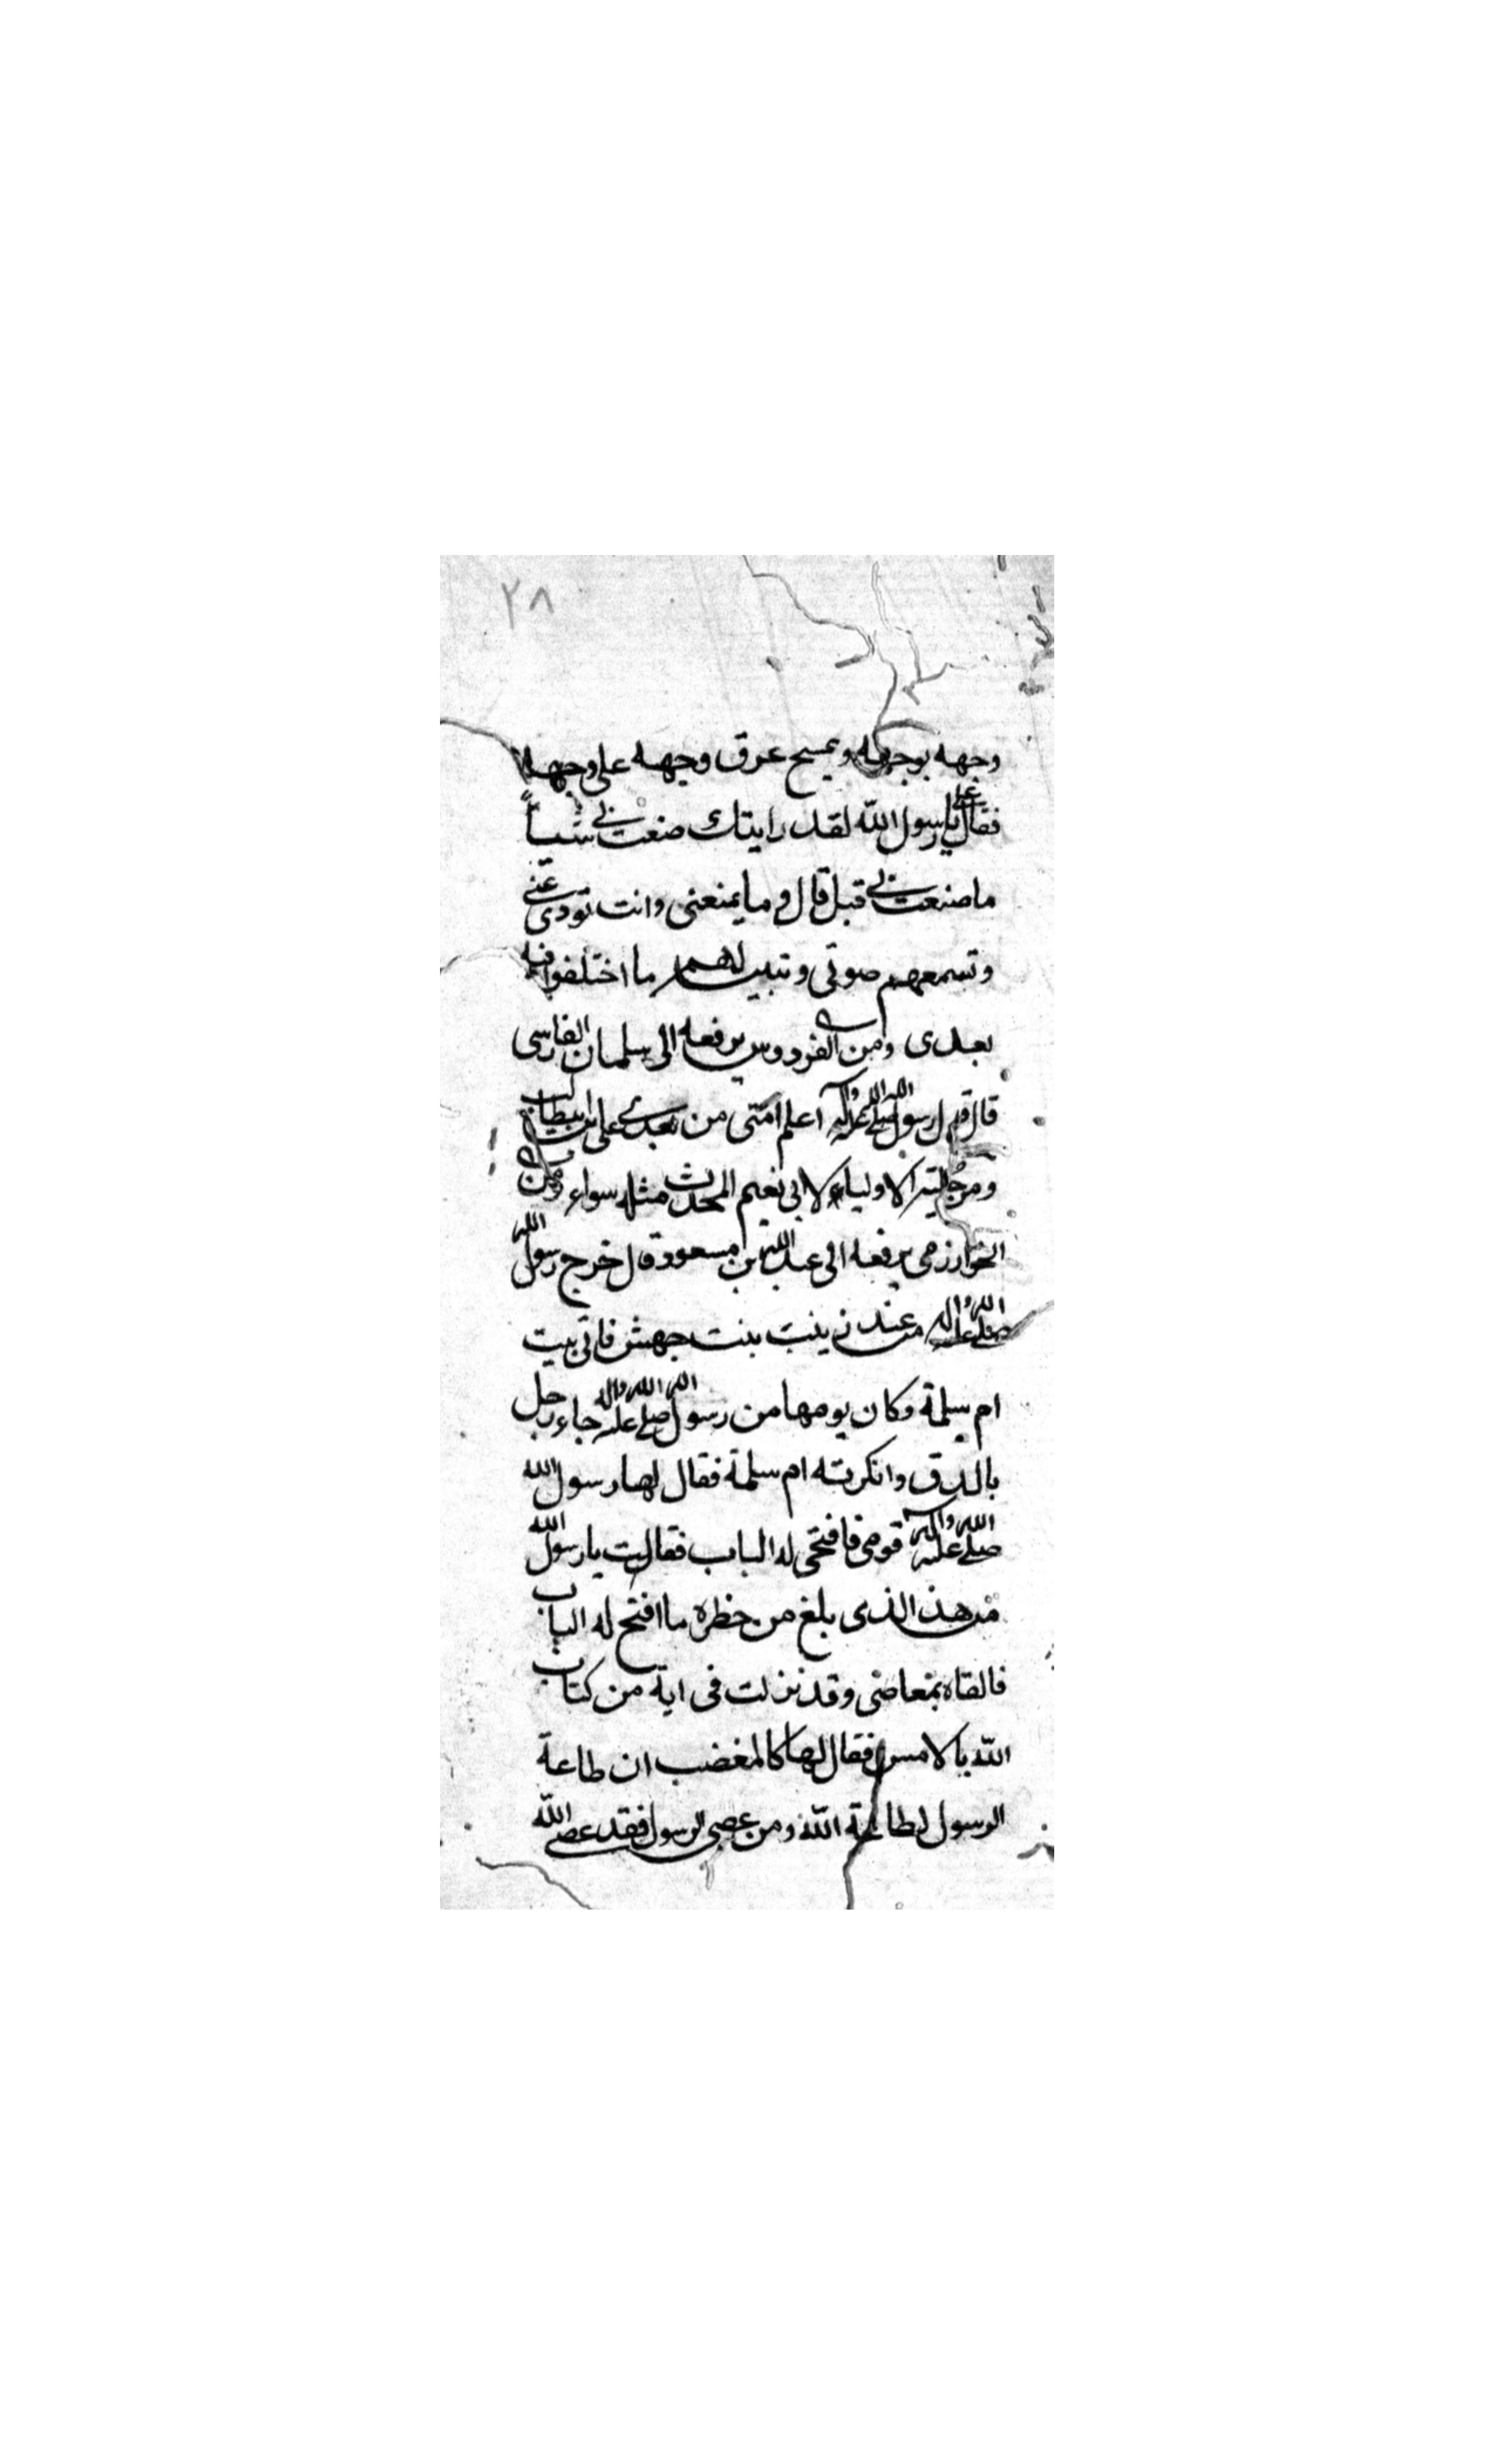 ٢٨
وجهه بوجهه ويمسح عرق وجهه على وجهه
فقال علي يا رسول الله لقد رايتك صنعت بي شيأً
ما صنعت بي قبل قال و ما يمنعني وانت تودي عنّي
وتسمعهم صوتي وتبين لهم ما اختلفوا فيه
بعدى ومن الفردوس يرفعه الى سلمان الفارسى
قال قال رسول الله صلى الله عليه واله اعلم امّتى من بعدي على ابن ابيطالب
ومن حلية الاولياء لابى نعيم المحدث مثله سواء ومن
الخوارزمى يرفعه الى عبد الله بن مسعود قال خرج رسول الله
صلى الله عليه واله من عند زينب بنت جهش فاتى بيت
ام سلمة وكان يومها من رسول الله صلى الله عليه واله جاء رجل
بالدق وانكرته ام سلمة فقال لها رسول الله
صلى الله عليه واله قومى فافتحى له الباب فقالت يا رسول الله
من هذ الذى بلغ من خطره ما افتح له الباب
فالقاه بمعاضى وقد نزلت فى اية من كتاب
الله بالامس فقال لها كالمغضب ان طاعة
الرسول لطاعة الله ومن عصى الرسول فقد عصى الله